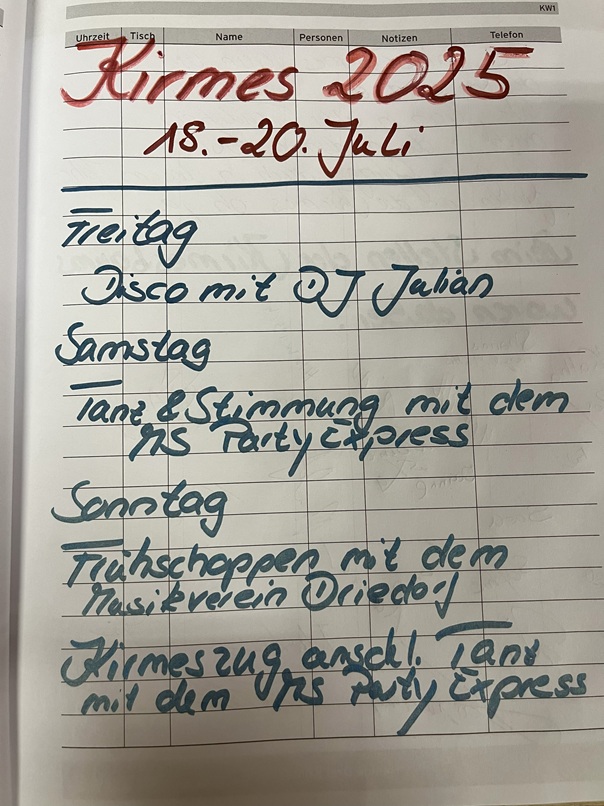 KW1
Uhrzeit Tisch Name Personen Notizen Telefon
Kirmes 2025
18.-20. Juli
Freitag
Disco mit DJ Julian
Samstag
Tanz & Stimmung mit dem
MS Party Express
Sonntag
Frühschoppen mit dem
Musikverein Driedorf
Kirmeszug anschl. Tanz
mit dem MS Party Express